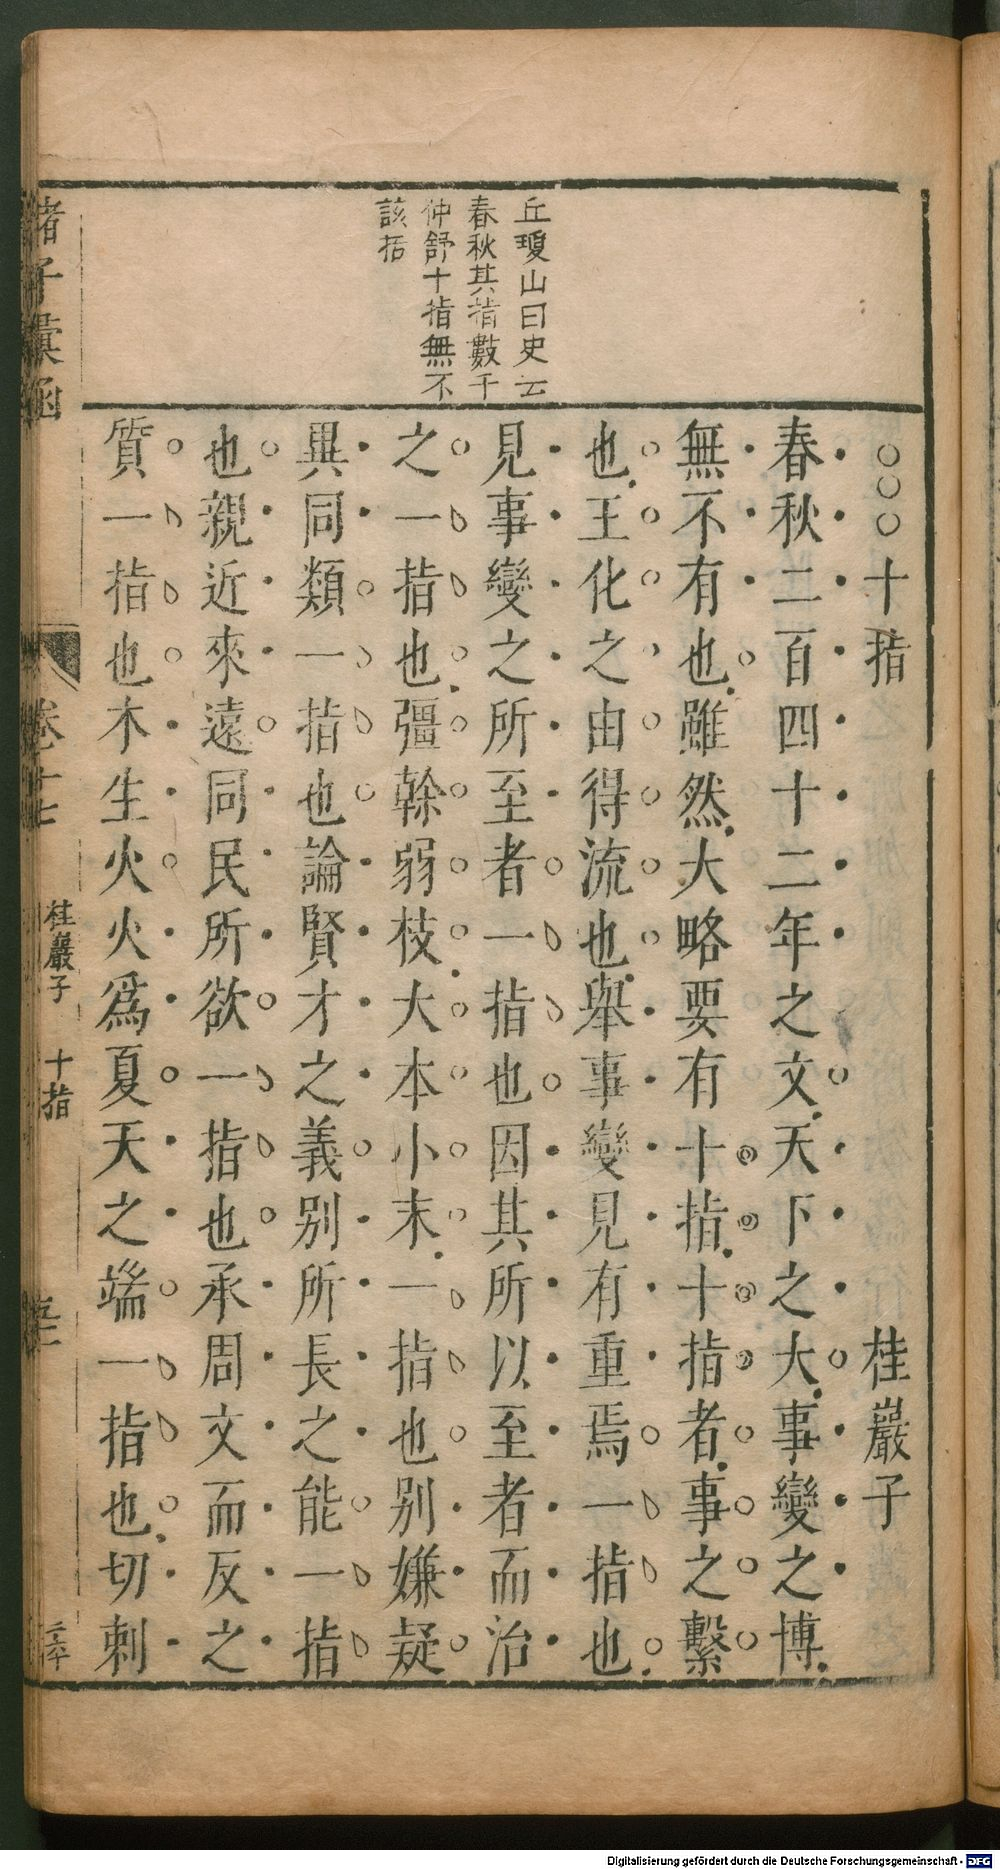 丘瓊山曰史云
春秋其指數千
仲舒十指無不
該括
○○○十指 桂巖子
春秋二百四十二年之文天下之大事變之博
無不有也雖然大略要有十指十指者事之繫
也王化之由得流也舉事變見有重焉一指也
見事變之所至者一指也因其所以至者而治
之一指也彊榦弱枝大本小末一指也别嫌疑
異同類一指也論賢才之義别所長之能一指
也親近來遠同民所欲一指也承周文而反之
質一指也木生火火爲夏天之端一指也切刺
諸子彙函
卷十七
桂巖子 十指
Digitalisierung gefördert durch die Deutsche Forschungsgemeinschaft - DFG